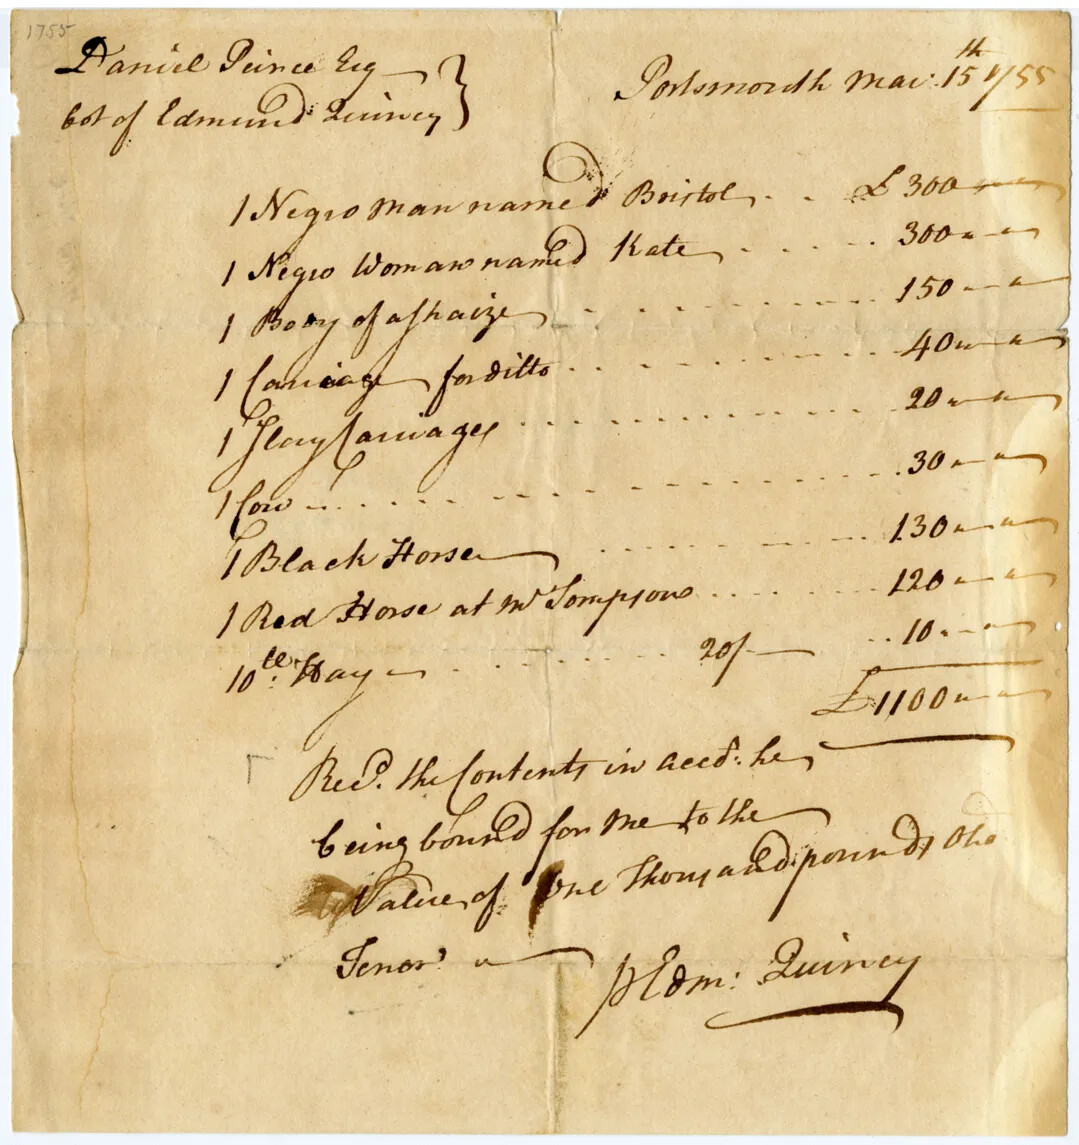 1755
Daniel Peirce Esq
bot of Edmund Quincy
Portsmouth Mar: 15th 1755
1 Negro man named Bristol . . £ 300 " "
1 Negro Woman named Kate . . . . . . 300 " "
1 Body of a Shaize . . . . . . . . . 150 " "
1 Carriage for ditto . . . . . . . . 40 " "
1 Carriages . . . . . . . . . 20 " "
1 Cow . . . . . . . . . . . . 30 " "
1 Black Horse . . . . . . . . 130 " "
1 Red Horse at Mr Tompsons . . . . . . 120 " "
10 Hay . . . . . . . 20/ . . 10 " "
£1100 " "
Recd. the Contents in accot: he
being bound for me to the
Value of One Thousand pounds Old
Tenor "
Edm: Quincy